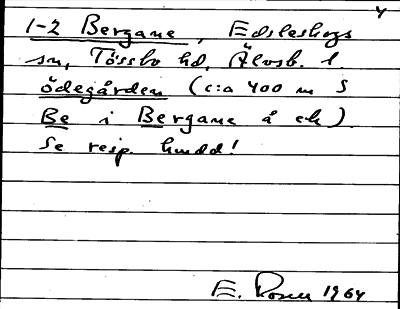 Y
1-2 Bergane, Edsleskogs
sn, Tössbo hd, Älvsb. l.
ödegården (c:a 400 m S
Be i Bergane å ek).
Se resp. huvud!
E. Rosen 1964